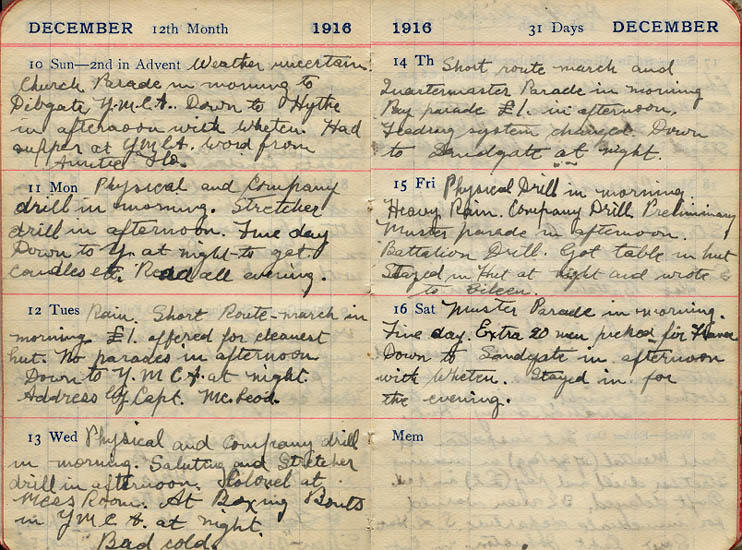 DECEMBER 12th Month 1916
10 Sun—2nd in Advent Weather uncertain
Church Parade in morning to
Dibgate Y.M.C.A. Down to Hythe
in afternoon with Wheten. Had
supper at YMCA. Word from
Auntie Flo.
11 Mon Physical and Company
drill in morning. Stretcher
drill in afternoon. Fine day
Down to Y. at night to get
candles etc. Read all evening.
12 Tues Rain. Short Route-march in
morning. £1. offered for cleanest
hut. No parades in afternoon
Down to Y.M.C.A. at night.
Address by Capt. McLeod.
13 Wed Physical and Company drill
in morning. Saluting and Stretcher
drill in afternoon. Colonel at
Mess Room. At Boxing Bouts
in Y.M.C.A. at night.
"Bad cold.
1916 31 Days DECEMBER
14 Th Short route march and
Quartermaster Parade in morning
Pay parade £1. in afternoon.
Feeding system changed. Down
to Sandgate at night.
15 Fri Physical Drill in morning
Heavy Rain. Company Drill Preliminary
Muster parade in afternoon.
Battalion Drill. Got table in hut
Stayed in hut at night and wrote
to Eileen.
16 Sat Muster Parade in morning.
Fine day. Extra 20 men picked for France
Down to Sandgate in afternoon
with Wheten. Stayed in for
the evening.
Mem